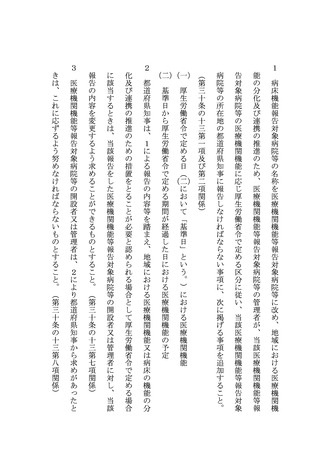 １　病床機能報告対象病院等の名称を医療機関機能等報告対象病院等に改め、地域における医療機関機
能の分化及び連携の推進のため、医療機関機能等報告対象病院等の管理者が、当該医療機関機能等報
告対象病院等の医療機関機能に応じ厚生労働省令で定める区分に従い、当該医療機関機能等報告対象
病院等の所在地の都道府県知事に報告しなければならない事項に、次に掲げる事項を追加すること。
（第三十条の十三第一項及び第二項関係）
㈠　厚生労働省令で定める日（㈡において「基準日」という。）における医療機関機能
㈡　基準日から厚生労働省令で定める期間が経過した日における医療機関機能の予定
２　都道府県知事は、１による報告の内容等を踏まえ、地域における医療機関機能又は病床の機能の分
化及び連携の推進のための措置をとることが必要と認められる場合として厚生労働省令で定める場合
に該当するときは、当該報告をした医療機関機能等報告対象病院等の開設者又は管理者に対し、当該
報告の内容を変更するよう求めることができるものとすること。（第三十条の十三第七項関係）
３　医療機関機能等報告対象病院等の開設者又は管理者は、２により都道府県知事から求めがあったと
きは、これに応ずるよう努めなければならないものとすること。（第三十条の十三第八項関係）